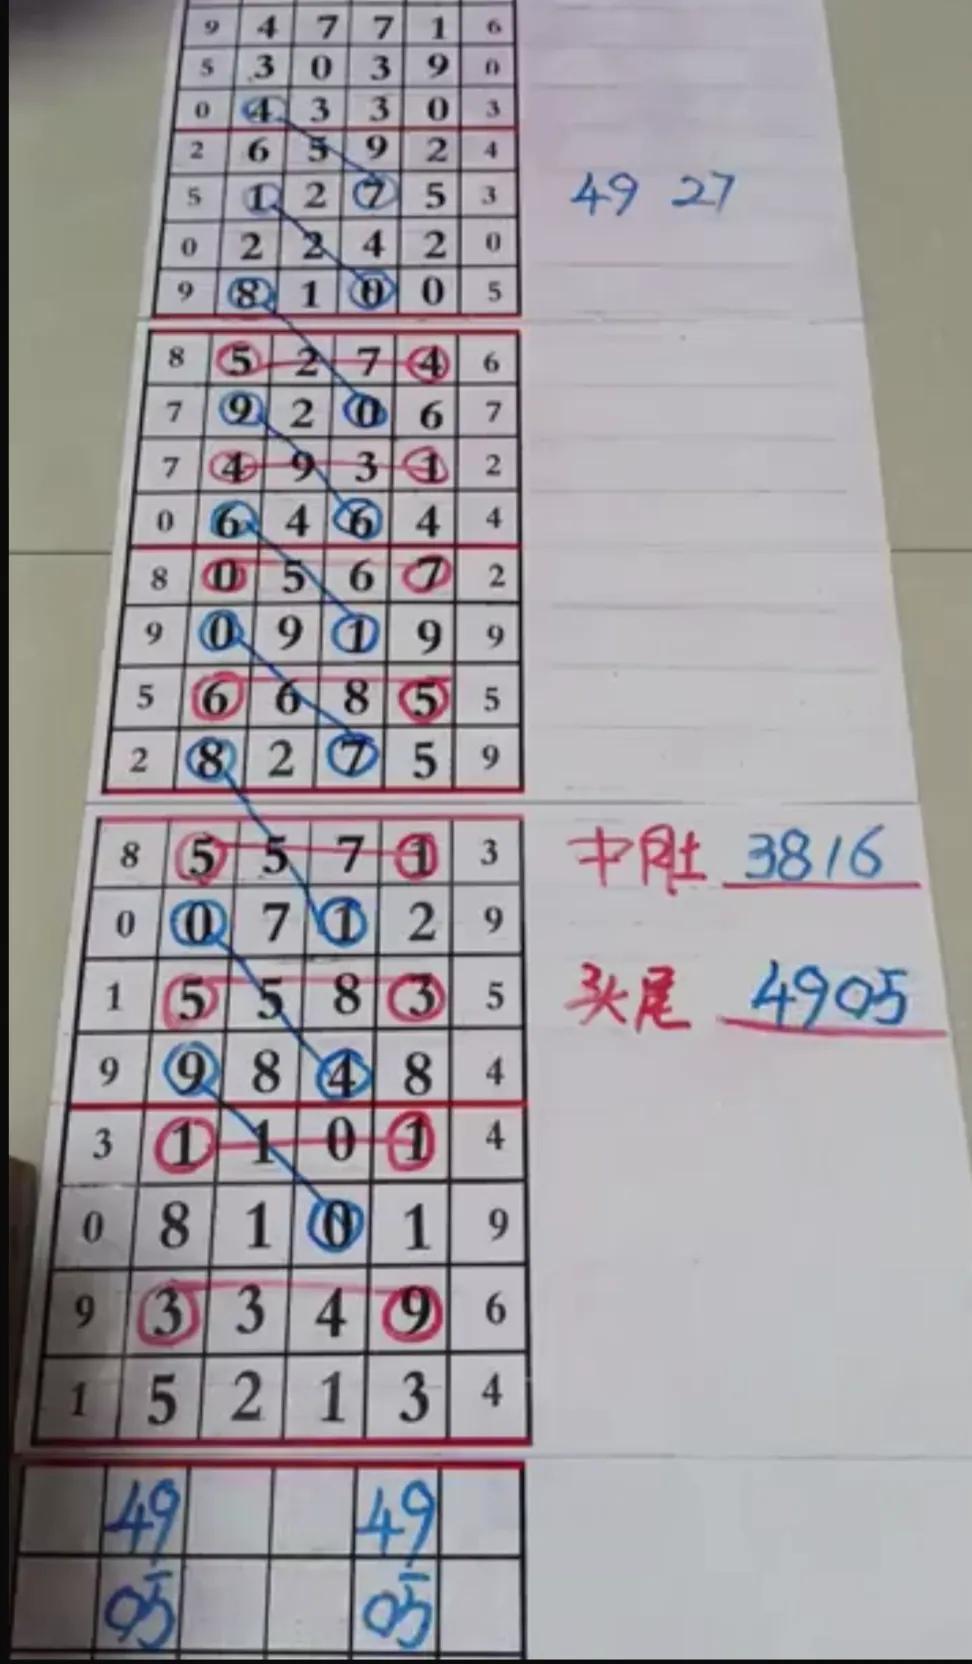 9 4 7 7 1 6
5 3 0 3 9 0
0 4 3 3 0 3
2 6 5 9 2 4
5 1 2 7 5 3 49 27
0 2 2 4 2 0
9 8 1 0 0 5
8 5 2 7 4 6
7 9 2 0 6 7
7 4 9 3 1 2
0 6 4 6 4 4
8 0 5 6 7 2
9 0 9 1 9 9
5 6 6 8 5 5
2 8 2 7 5 9
8 5 5 7 1 3 中肚 3816
0 0 7 1 2 9
1 5 5 8 3 5 头尾 4905
9 9 8 4 8 4
3 1 1 0 1 4
0 8 1 0 1 9
9 3 3 4 9 6
1 5 2 1 3 4
49 49
05 05